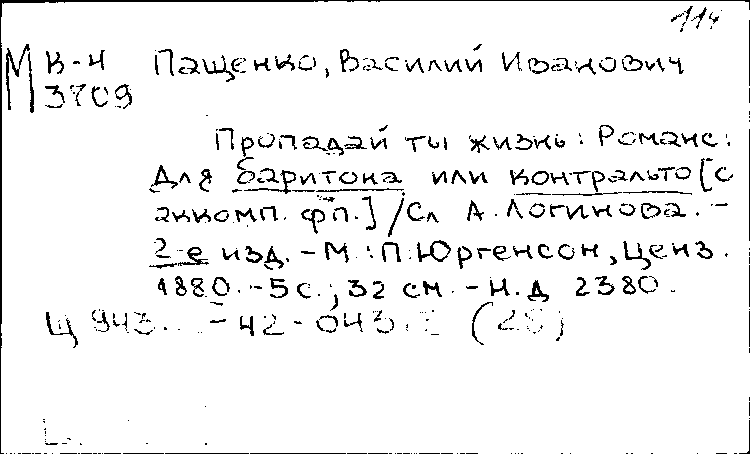 114
М К-4 Пащенко, Василий Иванович
3709
Пропадай ты жизнь: Романс:
Для баритона или контральто [с
аккомп. фп.] / Сл А. Логинова. -
2-е изд. - М.: П. Юргенсон, Ценз.
1880. - 5 с.; 32 см. - Н.д 2380.
Щ 943... - 42 - 043. (28)